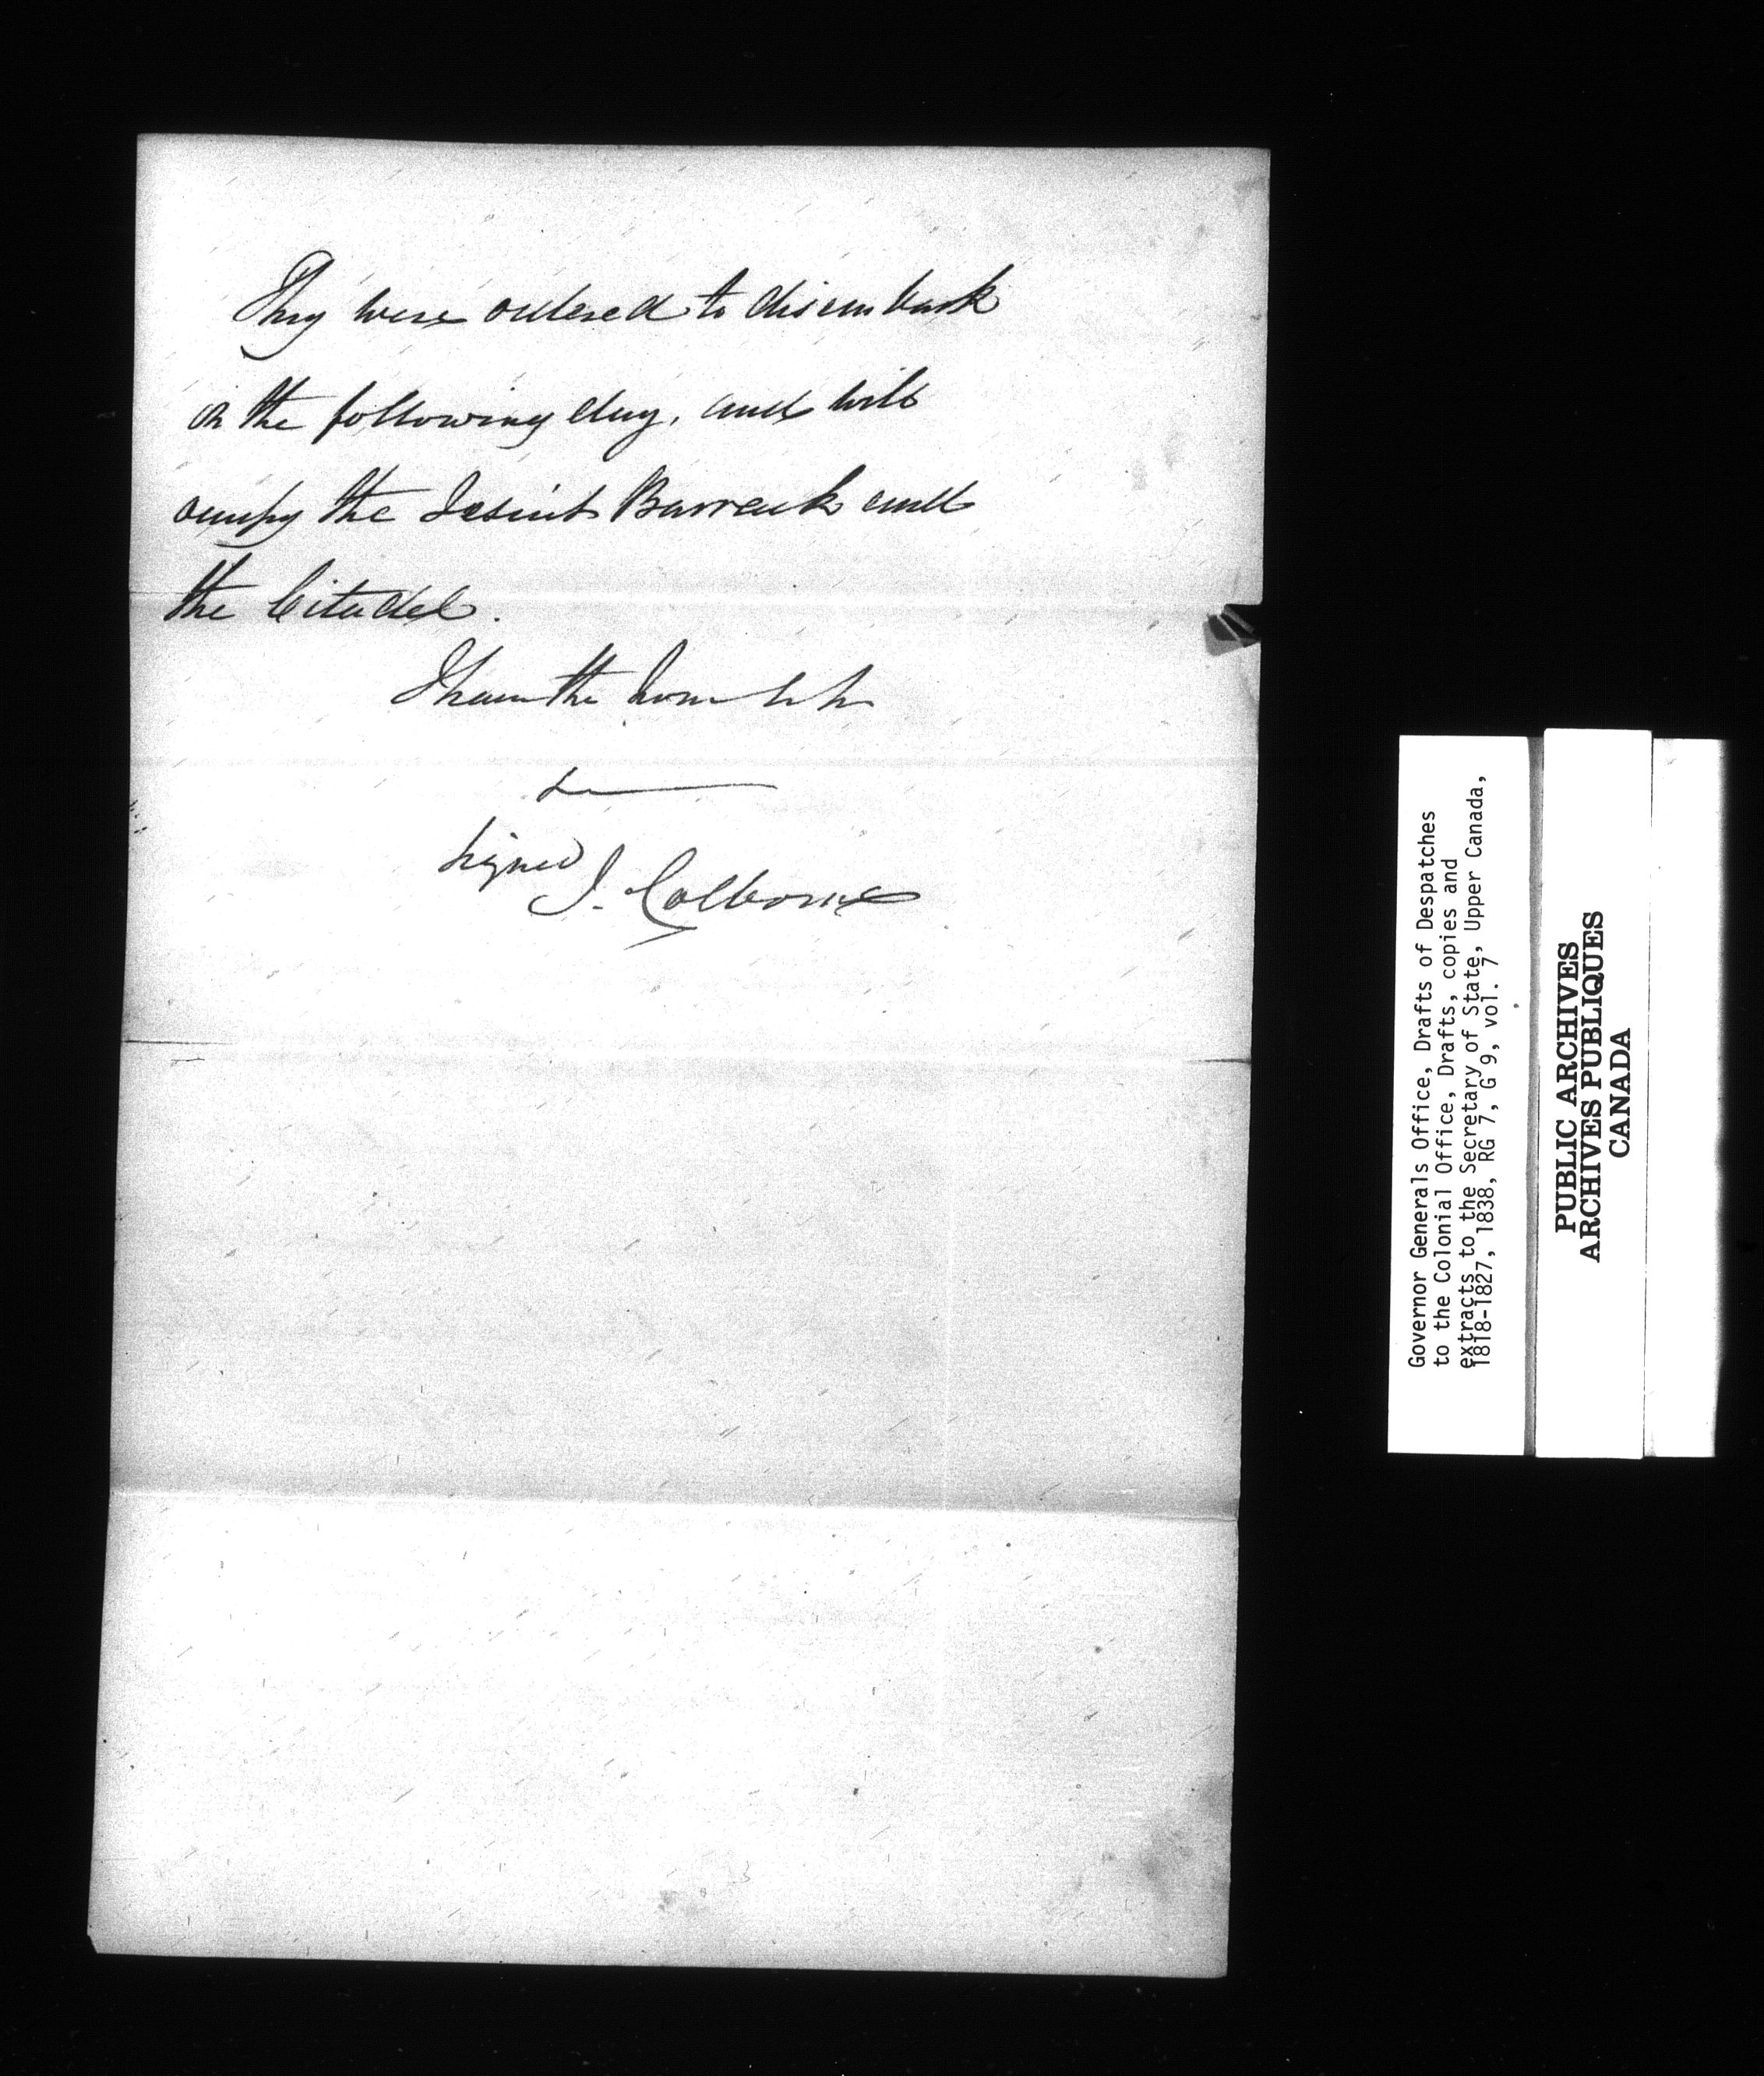 They were ordered to disembark
on the following day, and will
occupy the Jesuit Barrack and
the Citadel.
I have the honor to be
&c
Signed J. Colborne
Governor Generals Office, Drafts of Despatches
to the Colonial Office, Drafts, copies and
extracts to the Secretary of State, Upper Canada,
1818-1827, 1838, RG 7, G 9, vol. 7
PUBLIC ARCHIVES
ARCHIVES PUBLIQUES
CANADA